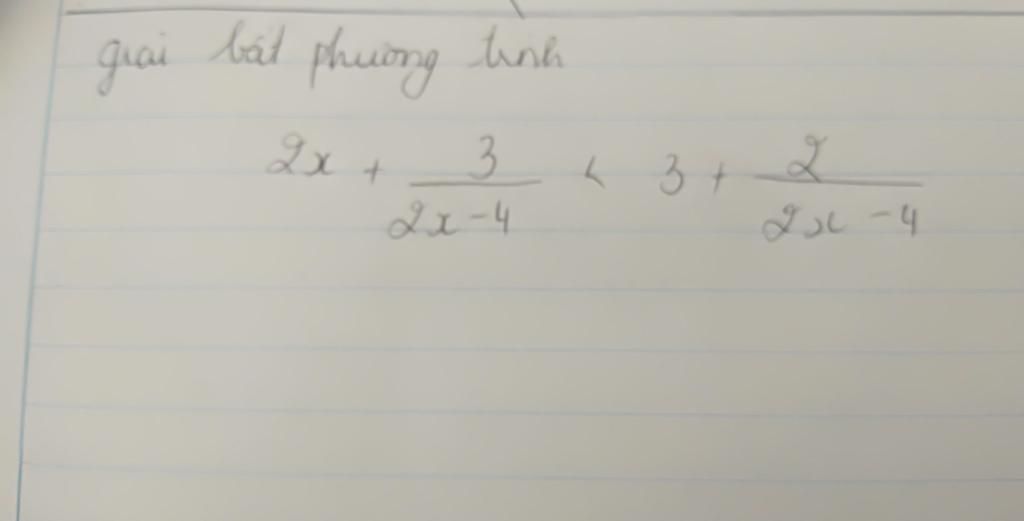 giai bất phương trình
2x + 3/(2x-4) < 3 + 2/(2x-4)